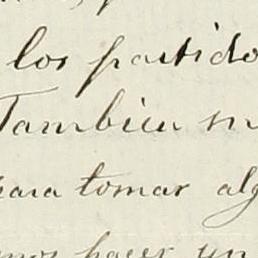 los partido
Tambien m
para tomar alg
mos hacer un